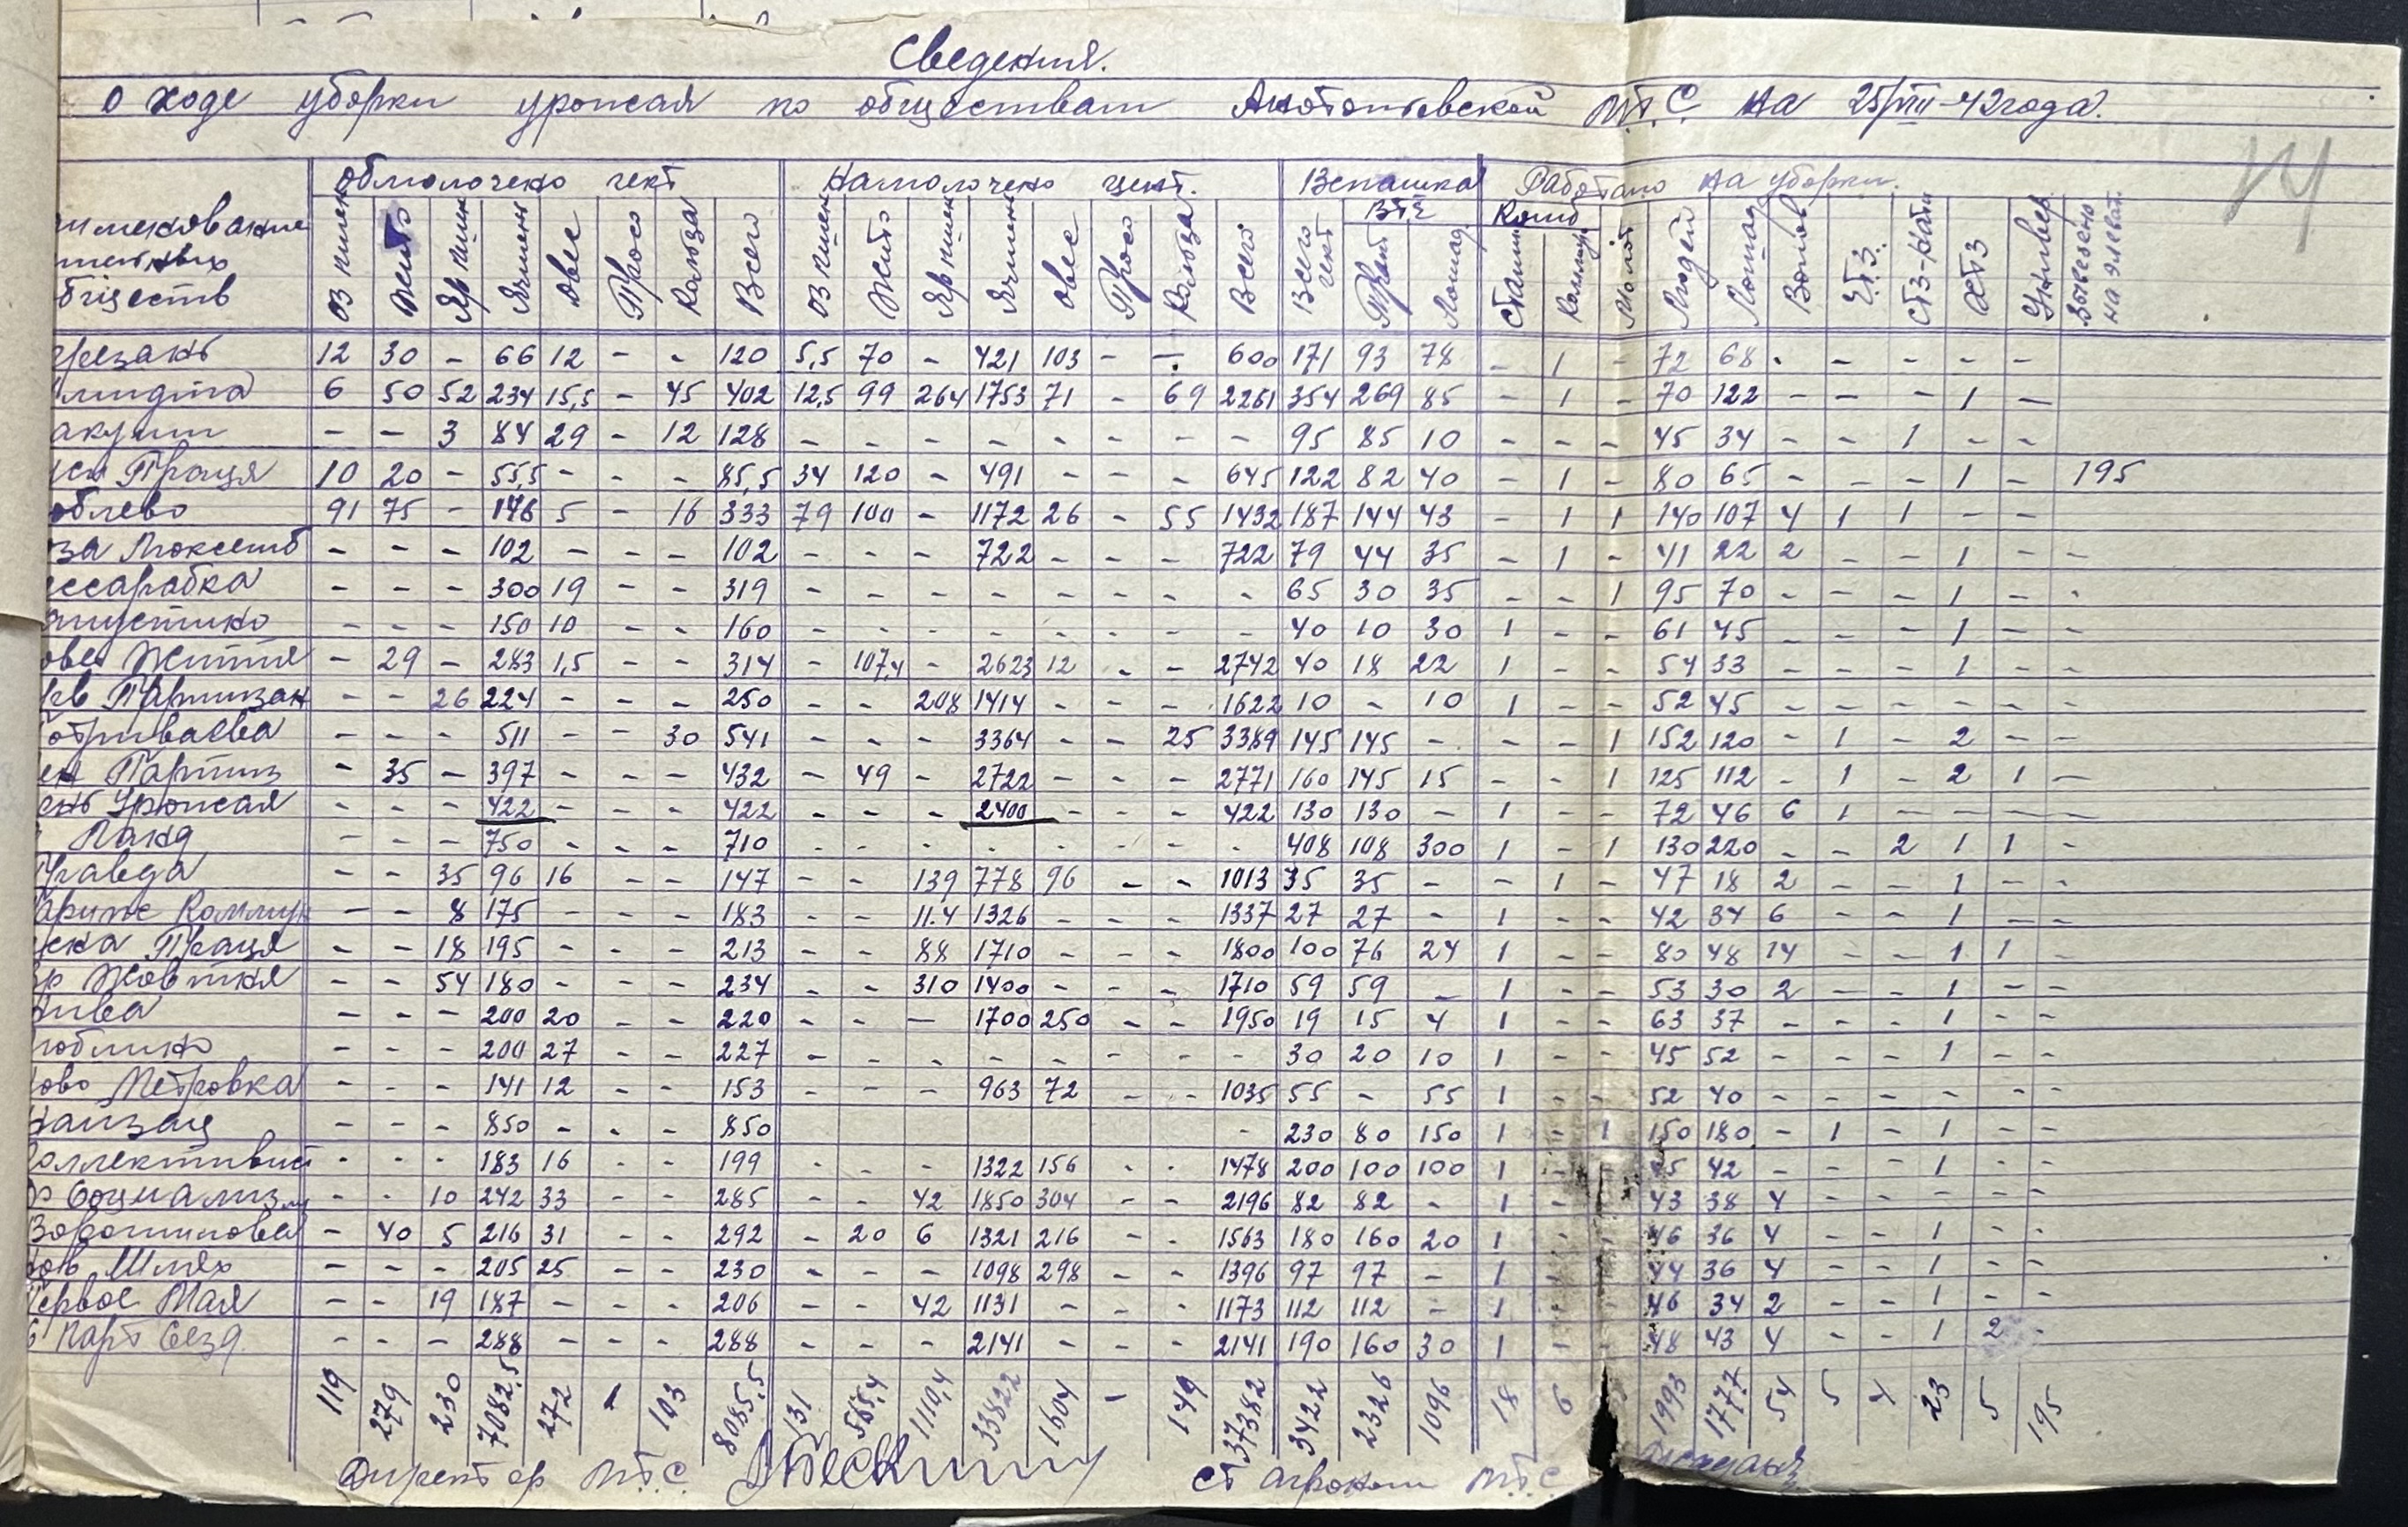 Сведения.
о ходе уборки урожая по обществам Анотопьевской М.Т.С. на 25/VIII-42 года.
14
именование
обществ
Обмолочено гект
Намолочено цент.
Вспашка
Работало на уборки.
В т.ч.
Комб
оз пшен Жито Яр пшен Ячмень Овес Просо Кользы Всего оз пшен Жито Яр пшен Ячмень Овес Просо Кользы Всего Всего гект Лошад Сталин Коммун Молот Людей Лошад Волов СТЗ-Нати ХТЗ Универ Вывезено на элеват.
резань 12 30 - 66 12 - - 120 5,5 70 - 421 103 - - 600 171 93 78 - 1 - 72 68 - - - - -
6 50 52 234 15,5 - 45 402 12,5 99 264 1753 71 - 69 2261 354 269 85 - 1 - 70 122 - - - 1 -
акушт - - 3 84 29 - 12 128 - - - - - - - - 95 85 10 - - - 45 34 - - 1 - -
Праця 10 20 - 55,5 - - - 85,5 34 120 - 491 - - - 645 122 82 40 - 1 - 80 65 - - - 1 - 195
облево 91 75 - 146 5 - 16 333 79 100 - 1172 26 - 55 1432 187 144 43 - 1 1 140 107 4 1 1 - -
за Люксемб - - - 102 - - - 102 - - - 722 - - - 722 79 44 35 - 1 - 41 22 2 - - 1 - -
ессарабка - - - 300 19 - - 319 - - - - - - - - 65 30 35 - - 1 95 70 - - - 1 - -
апустино - - - 150 10 - - 160 - - - - - - - - 40 10 30 1 - - 61 45 - - - 1 - -
ове Життя - 29 - 283 1,5 - - 314 - 107,4 - 2623 12 - - 2742 40 18 22 1 - - 54 33 - - - 1 - -
рв Партизан - - 26 224 - - - 250 - - 208 1414 - - - 1622 10 - 10 1 - - 52 45 - - - - - -
отриваева - - - 511 - - 30 541 - - - 3364 - - 25 3389 145 145 - - - 1 152 120 - 1 - 2 - -
ен Партиз - 35 - 397 - - - 432 - 49 - 2722 - - - 2771 160 145 15 - - 1 125 112 - 1 - 2 1 -
ень Урожая - - - 422 - - - 422 - - - 2400 - - - 422 130 130 - 1 - - 72 46 6 1 - - - -
Ланд - - - 750 - - - 710 - - - - - - - - 408 108 300 1 - 1 130 220 - - 2 1 1 -
Правда - - 35 96 16 - - 147 - - 139 778 96 - - 1013 35 35 - - 1 - 47 18 2 - - 1 - -
Париж Коммун - - 8 175 - - - 183 - - 11.4 1326 - - - 1337 27 27 - 1 - - 42 34 6 - - 1 - -
ска Праця - - 18 195 - - - 213 - - 88 1710 - - - 1800 100 76 24 1 - - 80 48 14 - - 1 1 -
р Жовтня - - 54 180 - - - 234 - - 310 1400 - - - 1710 59 59 - 1 - - 53 30 2 - - 1 - -
Нива - - - 200 20 - - 220 - - - 1700 250 - - 1950 19 15 4 1 - - 63 37 - - - 1 - -
юблино - - - 200 27 - - 227 - - - - - - - - 30 20 10 1 - - 45 52 - - - 1 - -
ово Петровка - - - 141 12 - - 153 - - - 963 72 - - 1035 55 - 55 1 - - 52 40 - - - - - -
Найзац - - - 850 - - - 850 - 230 80 150 1 - 1 150 180 - 1 - 1 - -
оллективист - - - 183 16 - - 199 - - - 1322 156 - - 1478 200 100 100 1 - 45 42 - - - 1 - -
Социализм - - 10 242 33 - - 285 - - 42 1850 304 - - 2196 82 82 - 1 - 43 38 4 - - - - -
Ворошилова - 40 5 216 31 - - 292 - 20 6 1321 216 - - 1563 180 160 20 1 46 36 4 - - 1 - -
ов Шлях - - - 205 25 - - 230 - - - 1098 298 - - 1396 97 97 - 1 44 36 4 - - 1 - -
Первое Мая - - 19 187 - - - 206 - - 42 1131 - - - 1173 112 112 - 1 46 34 2 - - 1 - -
Парт Сезд - - - 288 - - - 288 - - - 2141 - - - 2141 190 160 30 1 48 43 4 - - 1 2 -
119 279 230 7082,5 272 - 103 8085,5 131 565,4 1110,4 33822 1604 - 149 37382 3422 2326 1096 18 6 1993 1777 54 5 4 23 5 195
Директор М.Т.С.
Ст агроном М.Т.С.